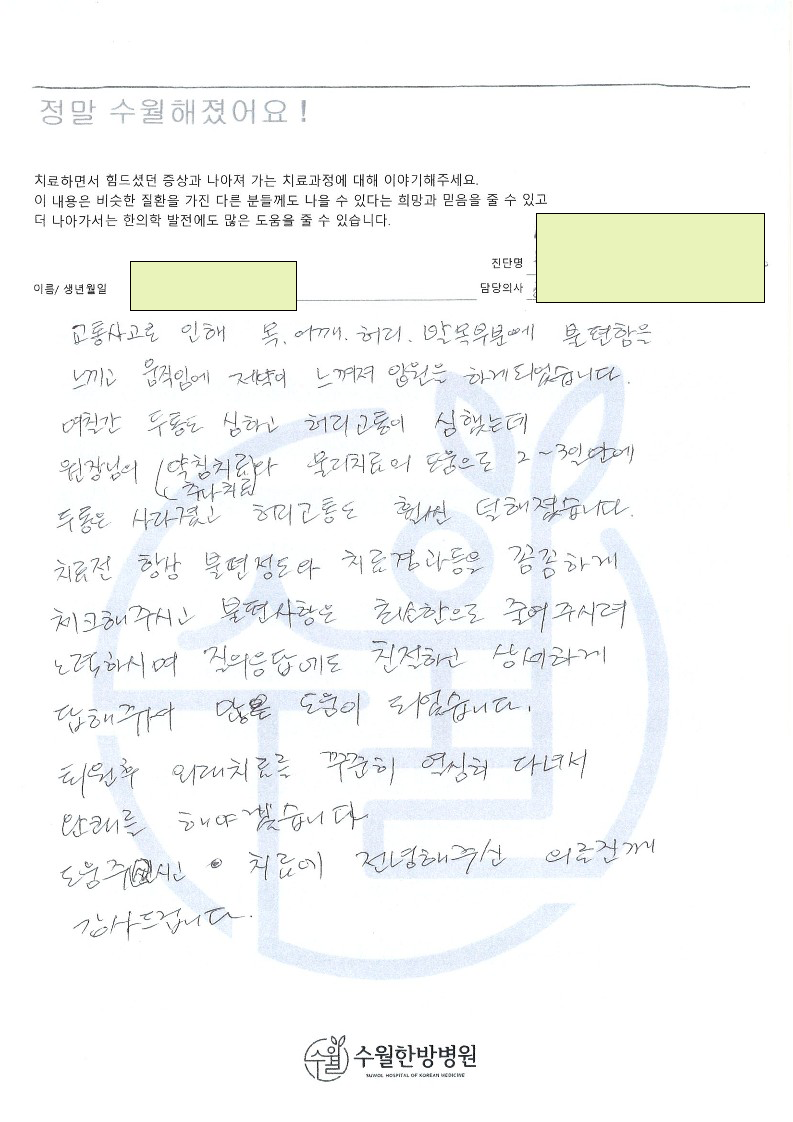 정말 수월해졌어요!
치료하면서 힘드셨던 증상과 나아져 가는 치료과정에 대해 이야기해주세요.
이 내용은 비슷한 질환을 가진 다른 분들께도 나을 수 있다는 희망과 믿음을 줄 수 있고
더 나아가서는 한의학 발전에도 많은 도움을 줄 수 있습니다.
진단명
이름/ 생년월일
담당의사
교통사고로 인해 목. 어깨. 허리. 발목부분에 불편함을
느끼고 움직임에 제약이 느껴져 입원을 하게되었습니다.
며칠간 두통도 심하고 허리고통이 심했는데
원장님의 (약침치료)와 물리치료의 도움으로 2~3일만에
추나치료
두통은 사라졌고 허리고통도 훨씬 덜해졌습니다.
치료전 항상 불편정도와 치료경과등을 꼼꼼하게
체크해주시고 불편사항은 최소한으로 줄여주시려
노력하시며 질의응답에도 친절하고 상세하게
답해주셔 많은 도움이 되었습니다.
퇴원후 외래치료를 꾸준히 열심히 다녀서
완쾌를 해야겠습니다
도움주시고 치료에 전념해주신 의료진께
감사드립니다.
수월
수월한방병원
SUWOL HOSPITAL OF KOREAN MEDICINE